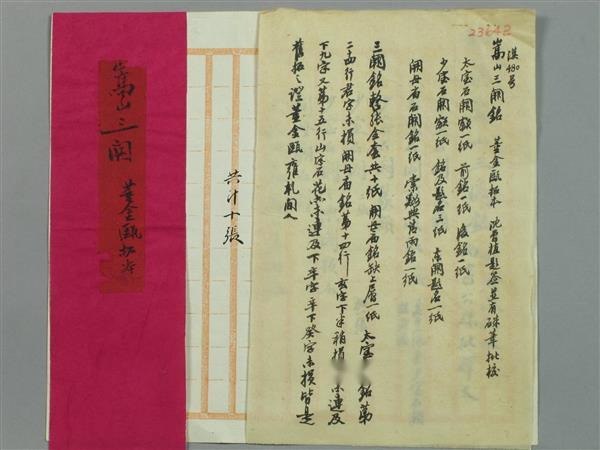 23642
漢480号
嵩山三闕銘 董金甌拓本 沈曾植題簽並有硃筆批校
太室石闕額一紙 前銘一紙 後銘一紙
少室石闕額一紙 銘及題名三紙 東闕題名一紙
開母廟石闕銘一紙 銘一紙
三闕銘整張全套共十紙 開母廟銘缺上層一紙 太室 銘第
二十四行君字未損 開母廟銘第十四行 玄字下半稍損 未連及
下九字又第十五行山字石花尚未連及下辛字辛下癸字未損皆是
舊拓之證董金甌雍乾間人
共計十張
嵩山三闕 董金甌拓本